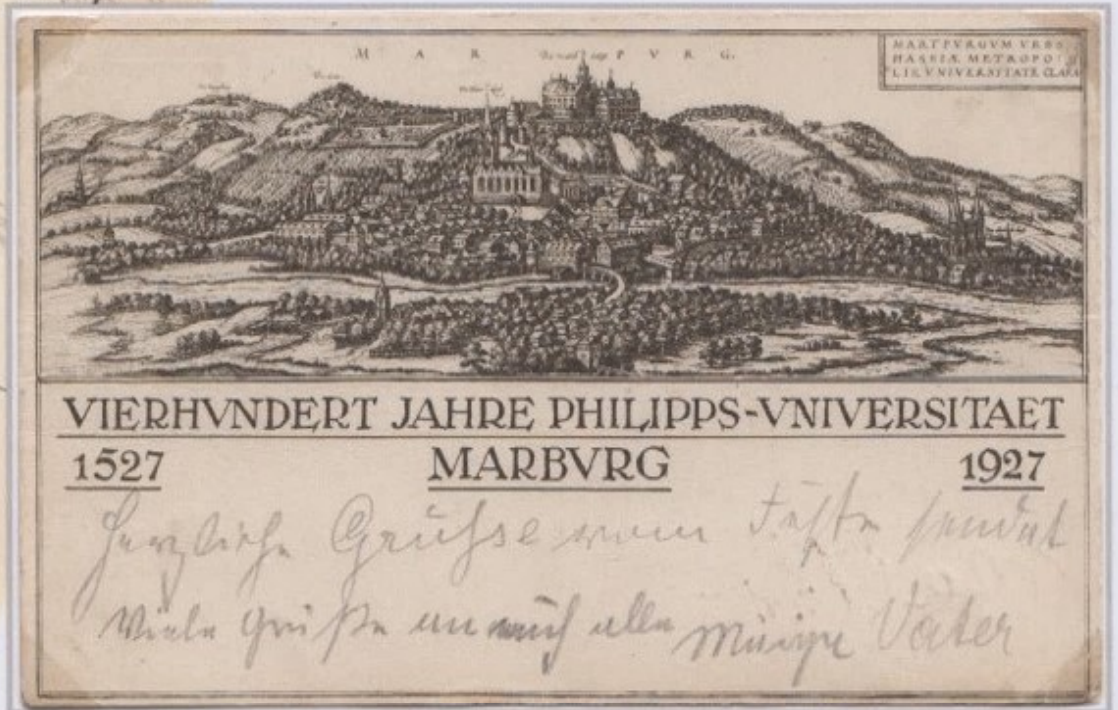 M A R P V R G.
MARTPVRGVM VRBS
HASSIÆ METROPO
LIS, VNIVERSITATE CLARA
VIERHVNDERT JAHRE PHILIPPS-VNIVERSITAET
1527 MARBVRG 1927
Herzliche Grühse vom Feste sendet
Viele Grüße an euch alle Vater